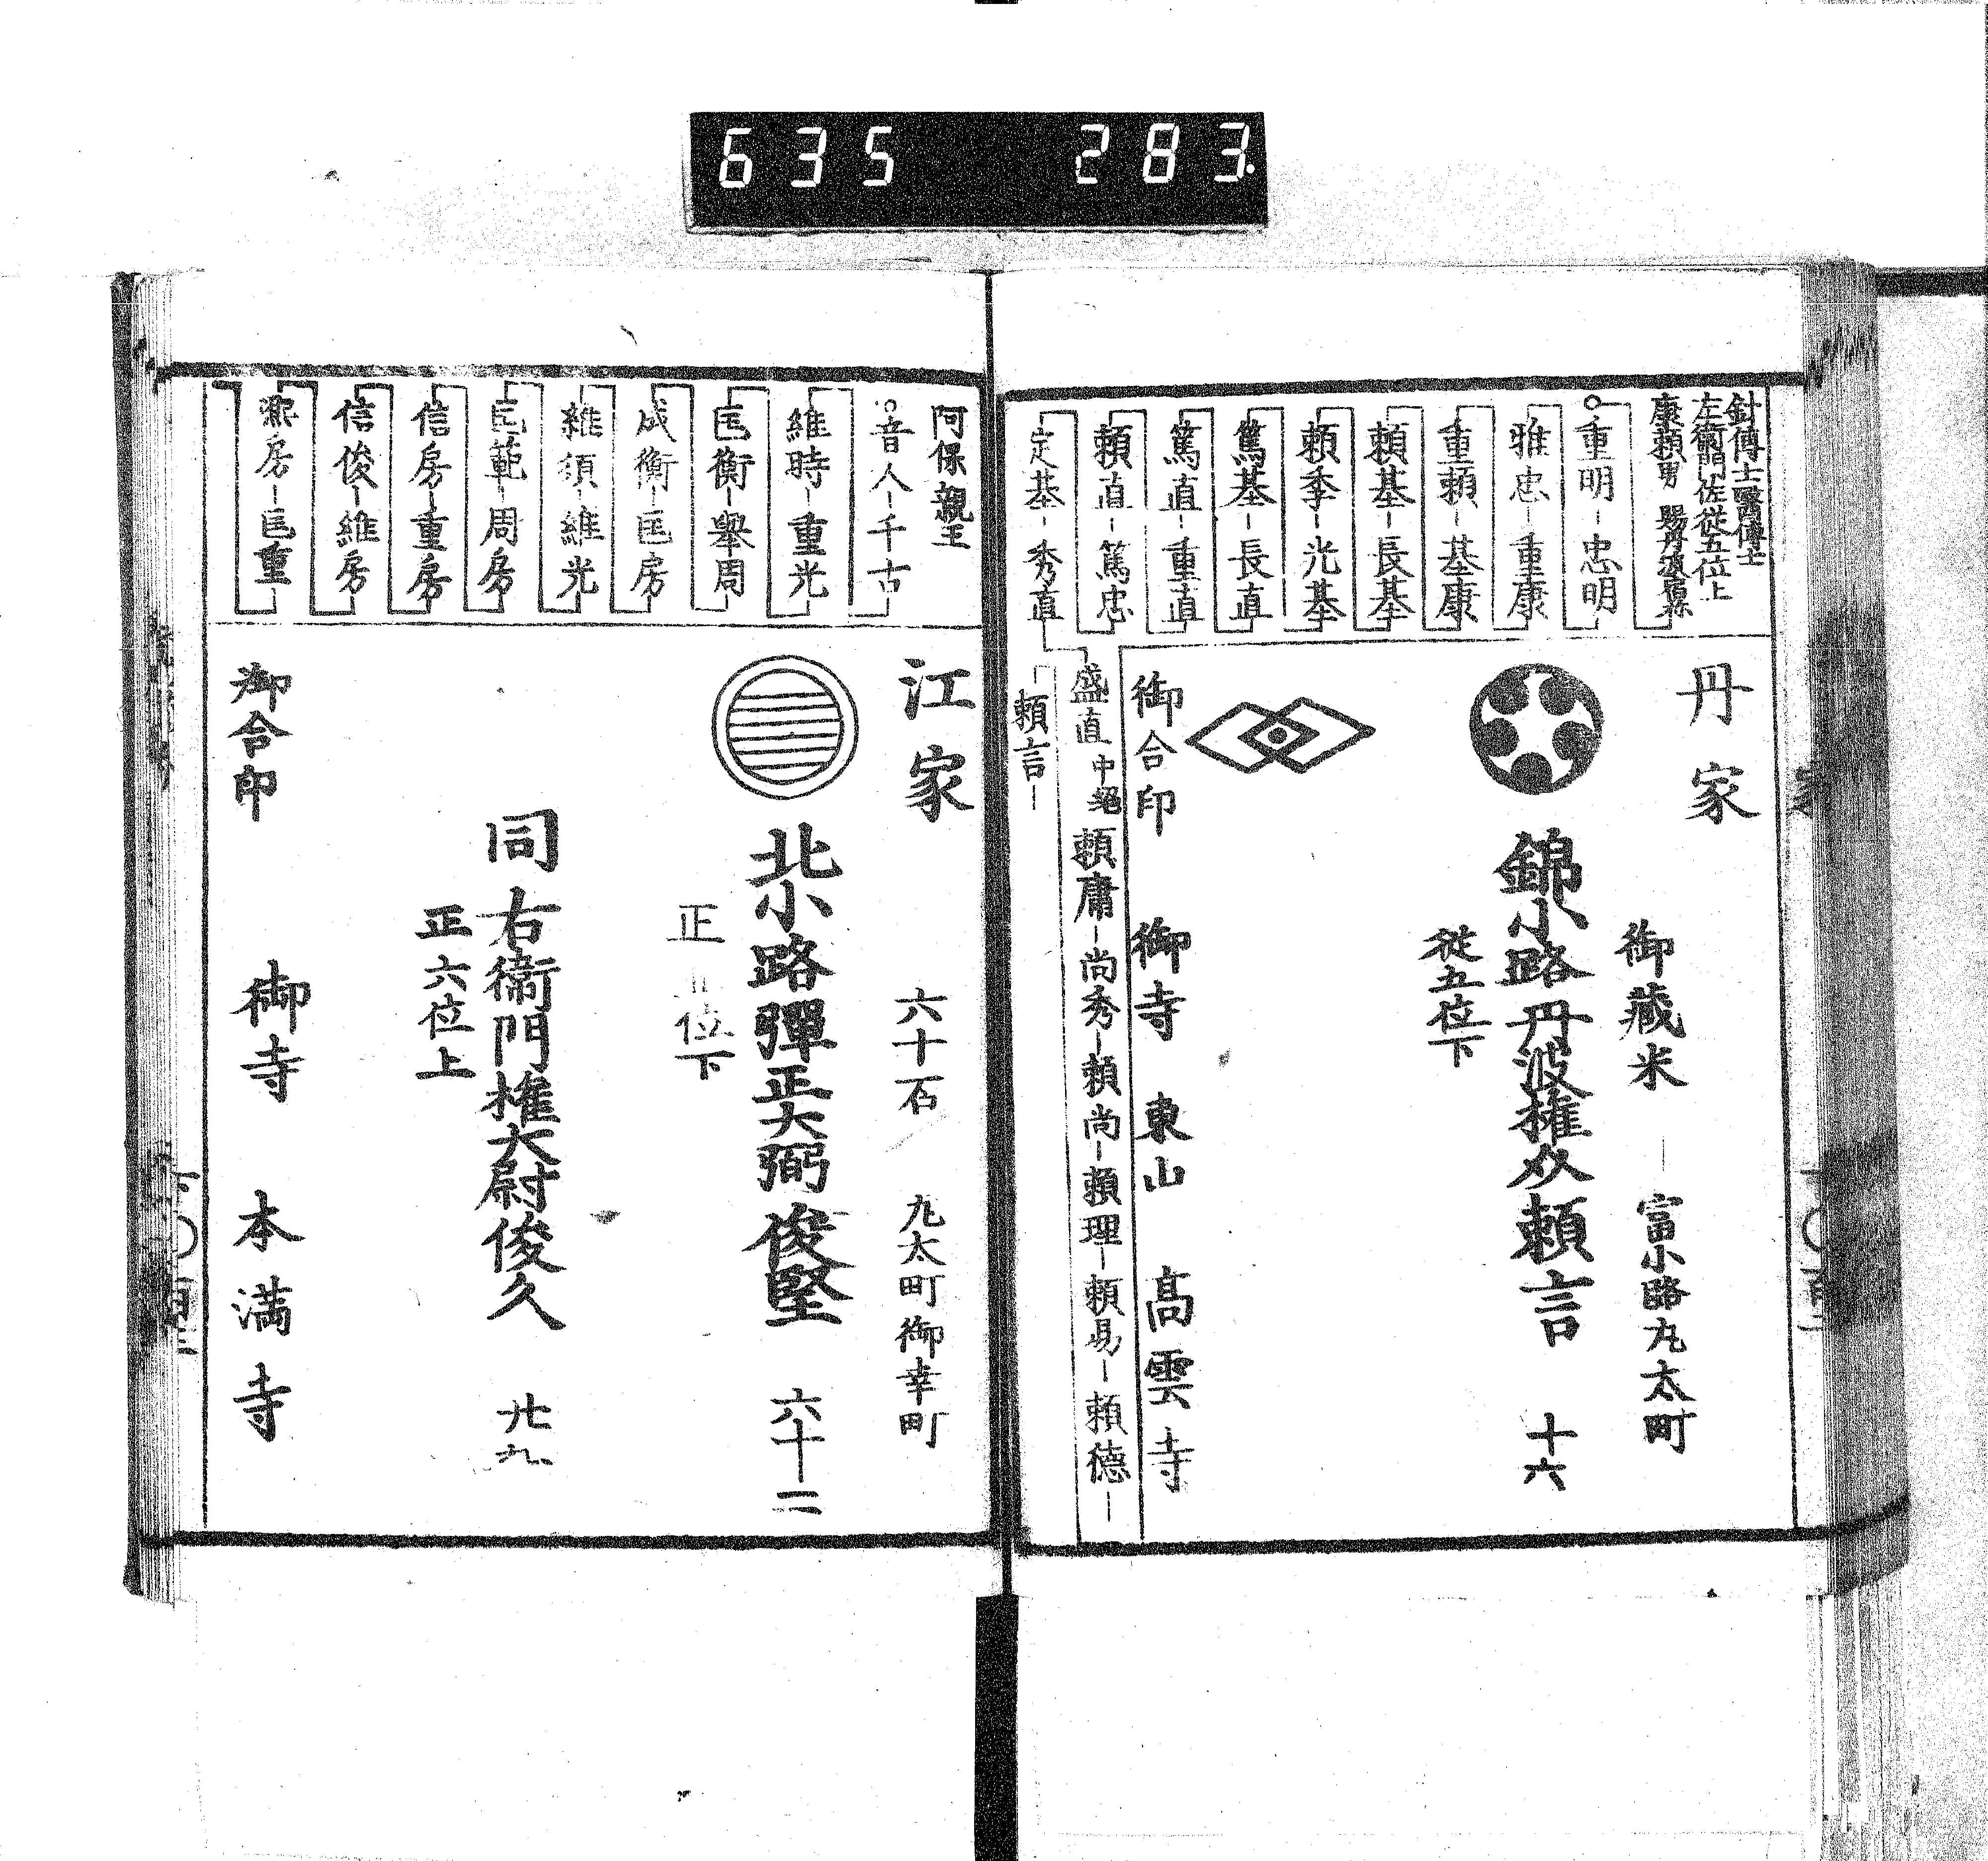 635 283.
針博士醫博士
左衛門佐従五位上
康頼男 賜丹波宿祢
重明-忠明
雅忠-重康
重頼-基康
頼基-長基
頼季-光基
篤基-長直
篤直-重直
頼直-篤忠
定基-秀直
盛直 中絕 頼庸-尚秀-頼尚-頼理-頼易-頼德-
-頼言-
丹家
御藏米 富小路丸太町
錦小路丹波權介頼言 十六
從五位下
御合印 御寺 東山 高雲寺
阿保親王
音人-千古
維時-重光
匡衡-舉周
成衡-匡房
維須-維光
匡範-周房
信房-重房
信俊-維房
房-匡重
江家
六十石 丸太町御幸町
北小路彈正大弼俊堅 六十二
正 位下
同右衛門權大尉俊久 廿九
正六位上
御合印 御寺 本満寺